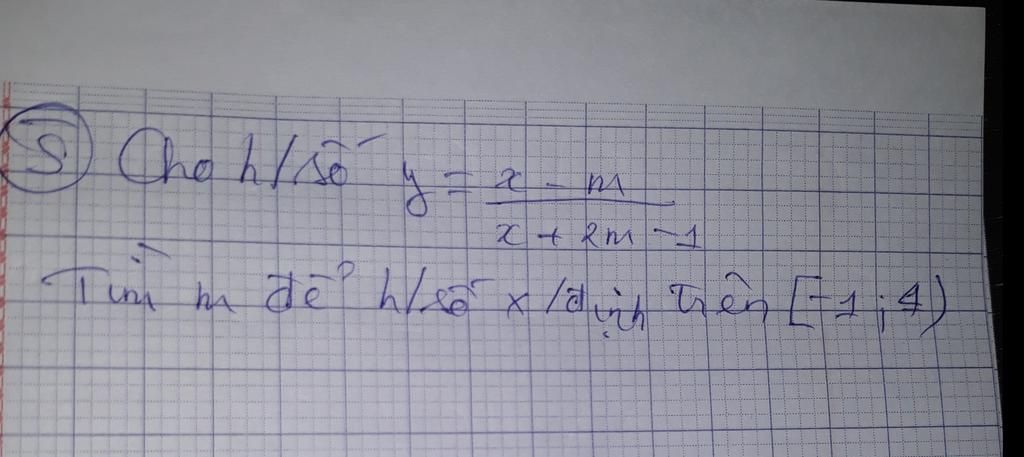 5 Cho h/số y = \frac{x - m}{x + 2m - 1}
Tìm m để h/số x/định trên [-1; 4)